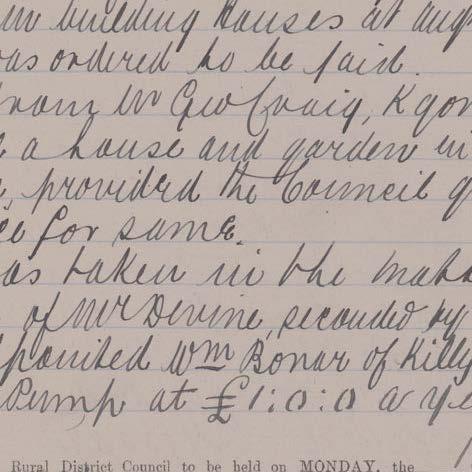 in building houses at aug
was ordered to be paid.
from Mr Geo Craig, Kgor
d a house and garden in
, provided the Council g
ce for same.
as taken in the matt
of Mr Devine, seconded by
ppointed Wm Bonar of Killy
Pump at £1:0:0 a ye
Rural District Council to be held on MONDAY, the